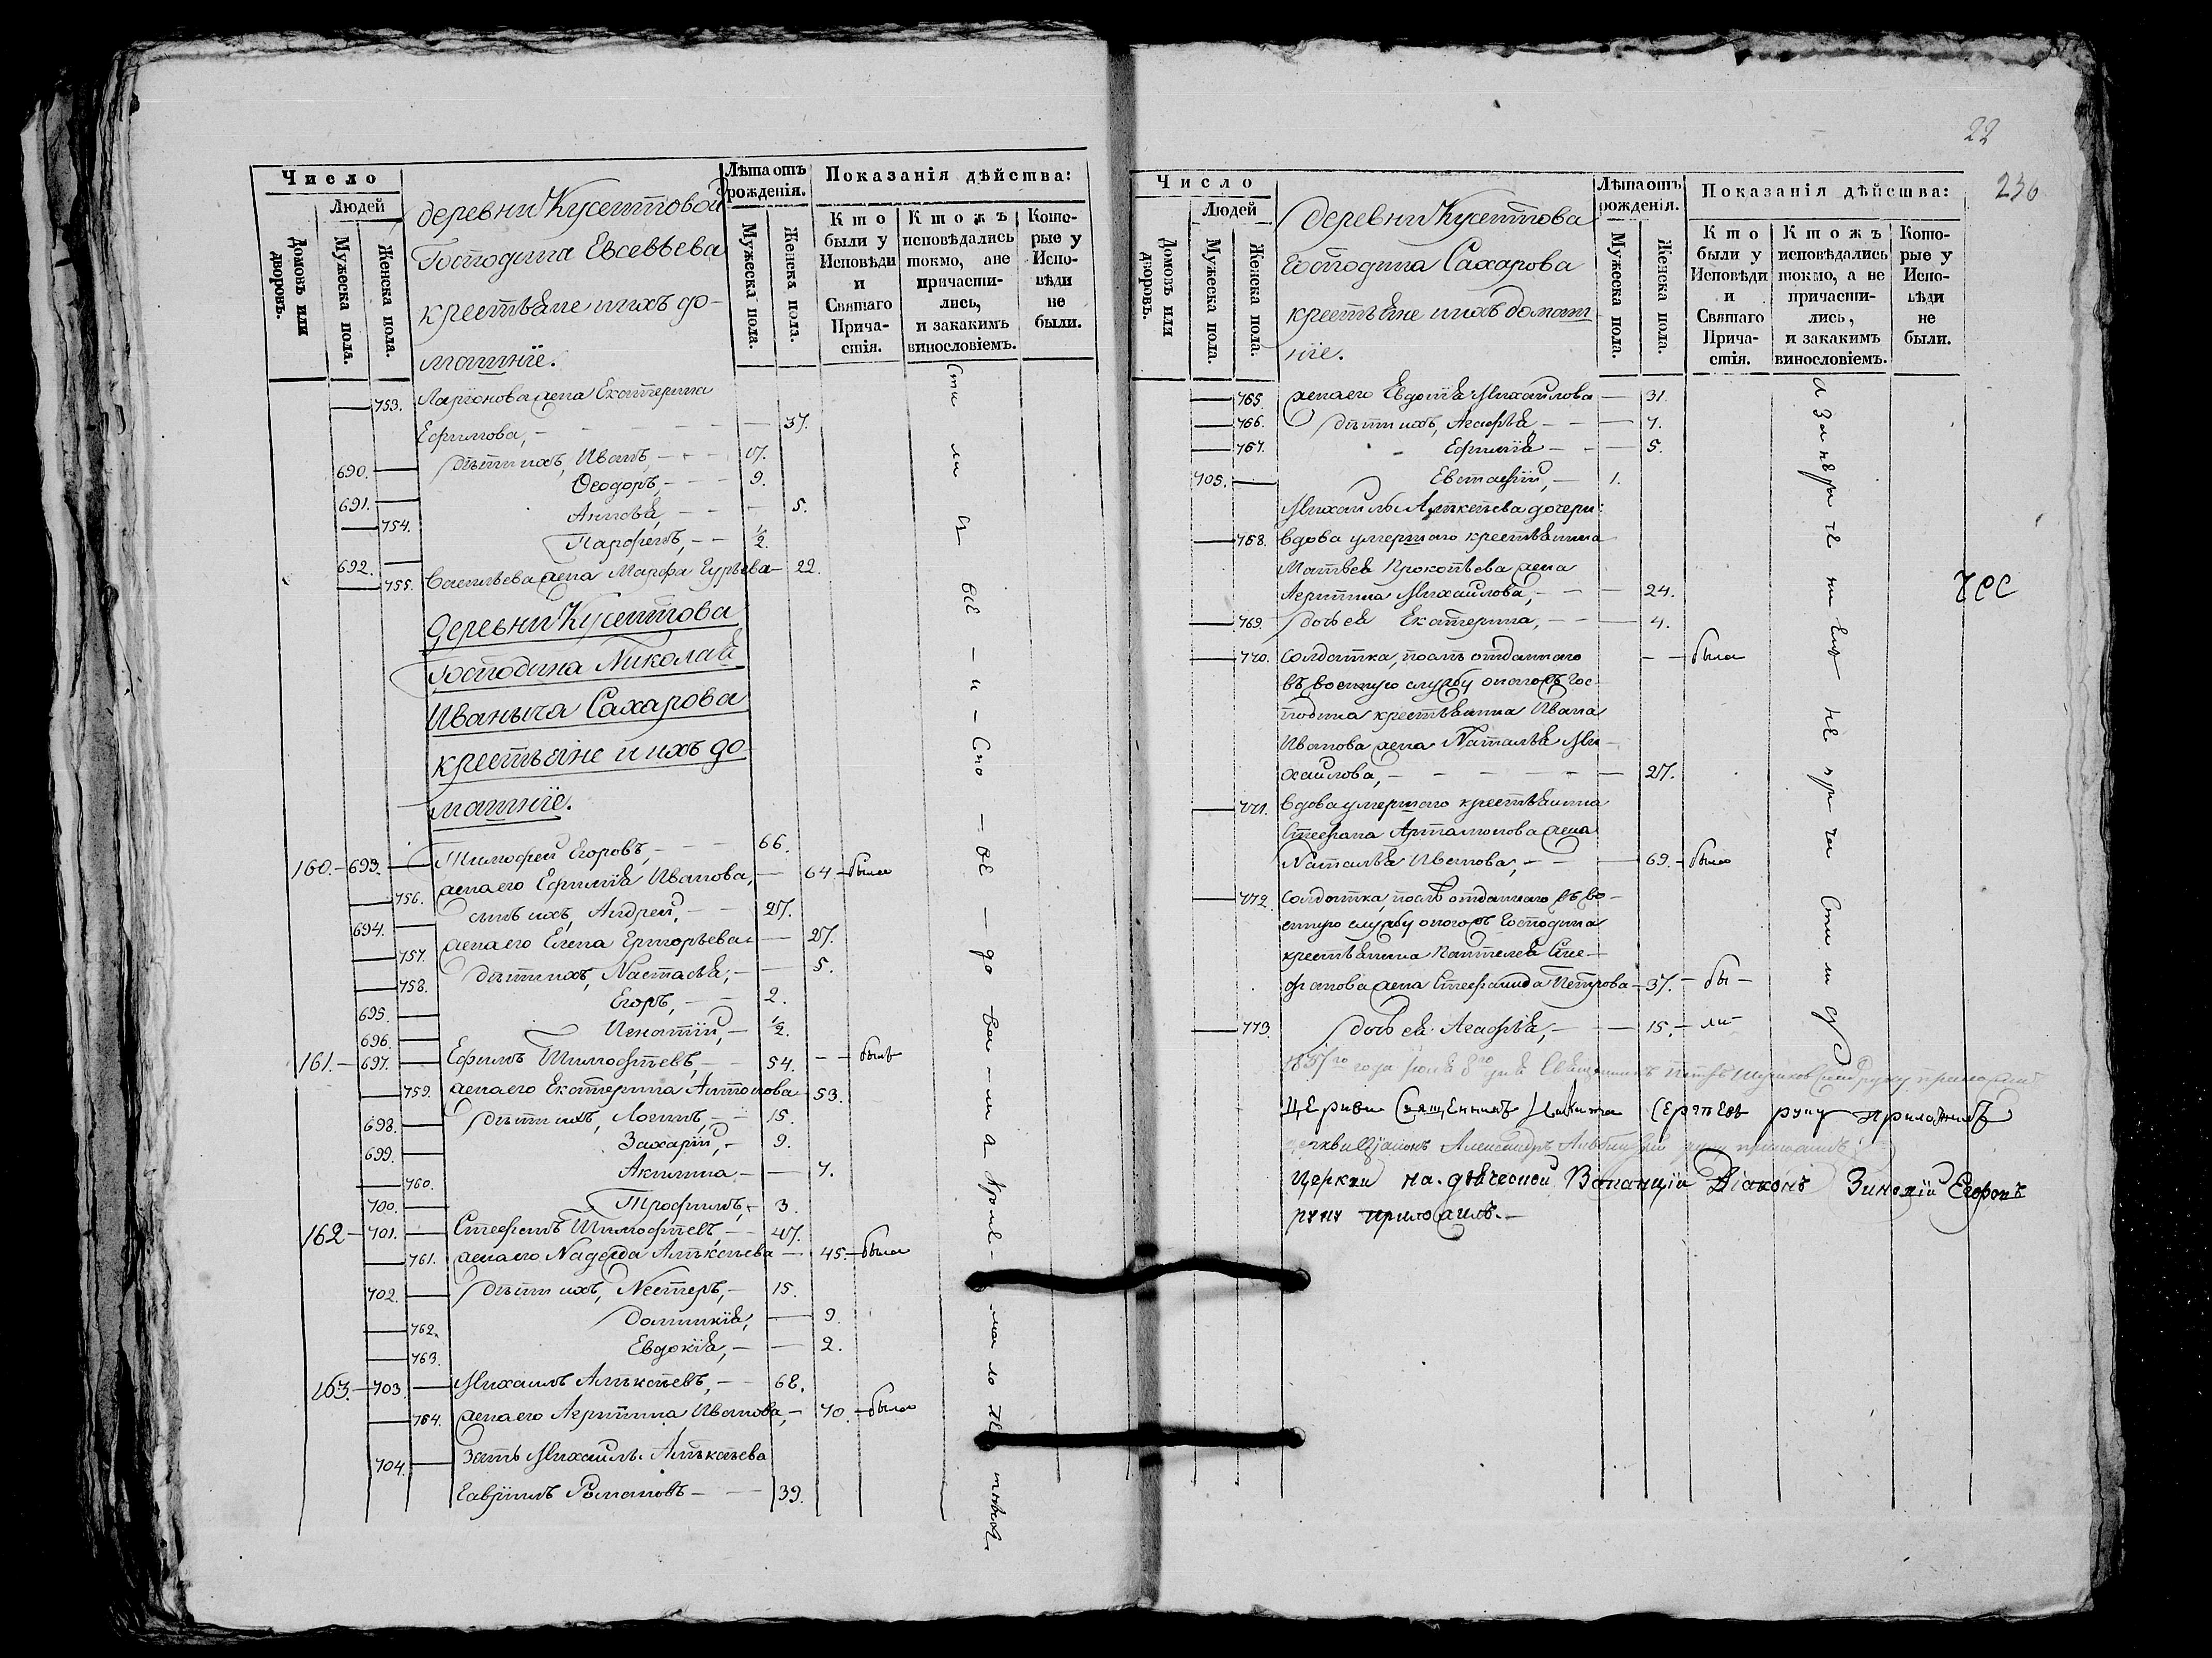 Число
Людей
Домовъ или дворовъ.
Мужеска пола.
Женска пола.
деревни Кусетовой
Господина Евсевьева
крестьяне и ихъ до-
машнїе.
Лѣта отъ рожденія.
Мужеска пола.
Женска пола.
Показанія дѣйства:
Кто были у Исповѣди и Святаго Причастія.
Ктожъ исповѣдались токмо, а не причастились, и закакимъ винословіемъ.
Которые у Исповѣди не были.
753. Ларіонова жена Екатерина
Ефимова, 37.
690. дѣти ихъ, Иванъ, 17.
691. Ѳеодоръ, 9.
754. 5.
692. Парфенъ, ½.
755. Васильева жена Марфа Гурьева 22.
деревни Кусетова
Господина Николая
Иваныча Сахарова
крестьяне и ихъ до-
машнїе.
160. 693. Тимофей Егоровъ, 66.
756. жена его Ефимїя Иванова, 64 была
694. сынъ ихъ, Андрей, 27.
757. жена его Елена Григорьева 27.
758. дѣти ихъ, Настасья, 5.
695. Егоръ, 2.
696. Игнатїй, ½.
161. 697. Ефимъ Тимофѣевъ, 54. былъ
759. жена его Екатерина Антонова 53.
698. дѣти ихъ, Логинъ, 15.
699. Захарїй, 9.
760. Акилина 7.
700. Трофимъ, 3.
162 701. Стефанъ Тимофѣевъ, 47.
761. жена его Надежда Алексѣева 45. была
702. дѣти ихъ, Нестеръ, 15.
762. Домникїя, 9.
763. Евдокїя, 2.
163. 703. Михаилъ Алексѣевъ, 68.
764. жена его Агрипина Иванова, 70. была
704. Зять Михаила Алексѣева
Гаврїилъ Романовъ 39.
22
230
Число
Людей
Домовъ или дворовъ.
Мужеска пола.
Женска пола.
деревни Кусетова
Господина Сахарова
крестьяне и ихъ домаш
нїе.
Лѣта отъ рожденія.
Мужеска пола.
Женска пола.
Показанія дѣйства:
Кто были у Исповѣди и Святаго Причастія.
Ктожъ исповѣдались токмо, а не причастились, и закакимъ винословіемъ.
Которые у Исповѣди не были.
765. жена его Евдокїя Михайлова 31.
766. дѣти ихъ, Агафья 7.
767. Ефимїя 5.
705. Евстафїй, 1.
Михаила Алексѣева дочери:
768. вдова умершаго крестьянина
Матвея Прокопьева жена
Агрипина Михайлова, 24.
769. дочь ея Екатерина, 4.
770. солдатка, послѣ отданнаго была
въ военную службу онагожъ Гос-
подина крестьянина Ивана
Иванова жена Наталья Ми-
хайлова, 27.
771. вдова умершаго крестьянина
Стефана Артамонова жена
Наталья Иванова, 69. была
772. солдатка, послѣ отданнаго въ во-
енную службу онагожъ Господина
крестьянина Пантелея Сте-
фанова жена Стефанида Петрова 37. бы-
773. дочь ея Агафья, 15. ли
1837го года 8го дня Священникъ Петръ руку приложилъ
Церкви Священникъ Никита Сергеев руку приложилъ
церкви Діаконъ Александръ руку приложилъ
Церкви на дьяческой Ваканціи Діаконъ Зиновій Егоровъ
руку приложилъ.